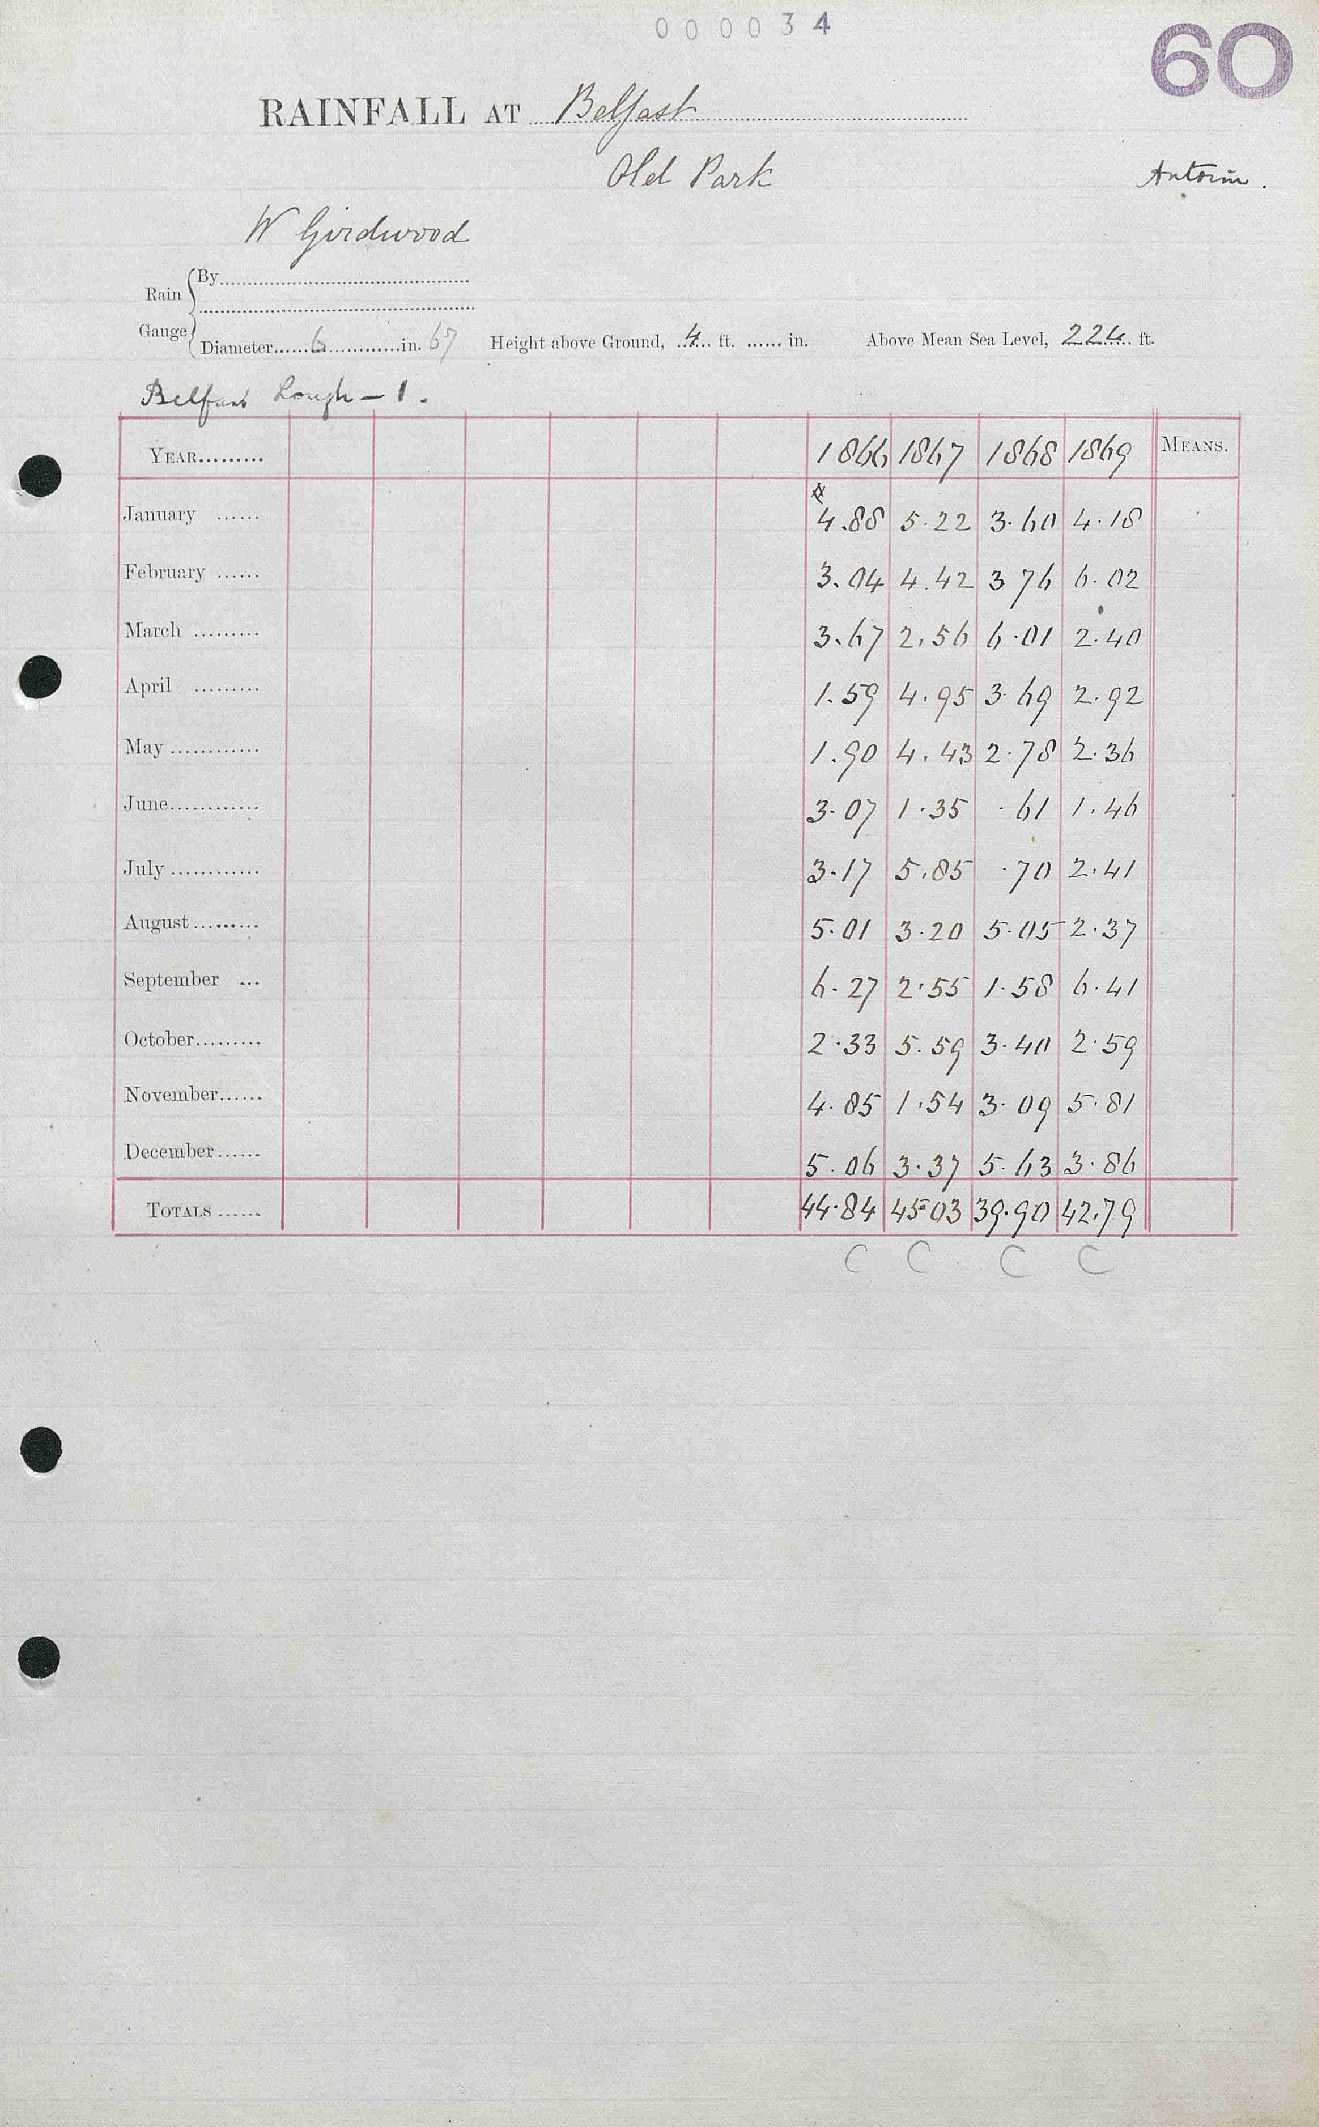 000034
60
RAINFALL AT Belfast
Old Park
Antrim.
W Girdwood
Rain Gauge { By
Diameter 6 in. 67 Height above Ground, 4 ft. in. Above Mean Sea Level, 224 ft.
Belfast Lough – 1.
YEAR 1866 1867 1868 1869 MEANS.
January 4.88 5.22 3.60 4.18
February 3.04 4.42 3 76 6.02
March 3.67 2.56 6.01 2.40
April 1.59 4.95 3.69 2.92
May 1.90 4.43 2.78 2.36
June 3.07 1.35 .61 1.46
July 3.17 5.85 .70 2.41
August 5.01 3.20 5.05 2.37
September 6.27 2.55 1.58 6.41
October 2.33 5.59 3.40 2.59
November 4.85 1.54 3.09 5.81
December 5.06 3.37 5.63 3.86
TOTALS 44.84 45.03 39.90 42.79
C C C C